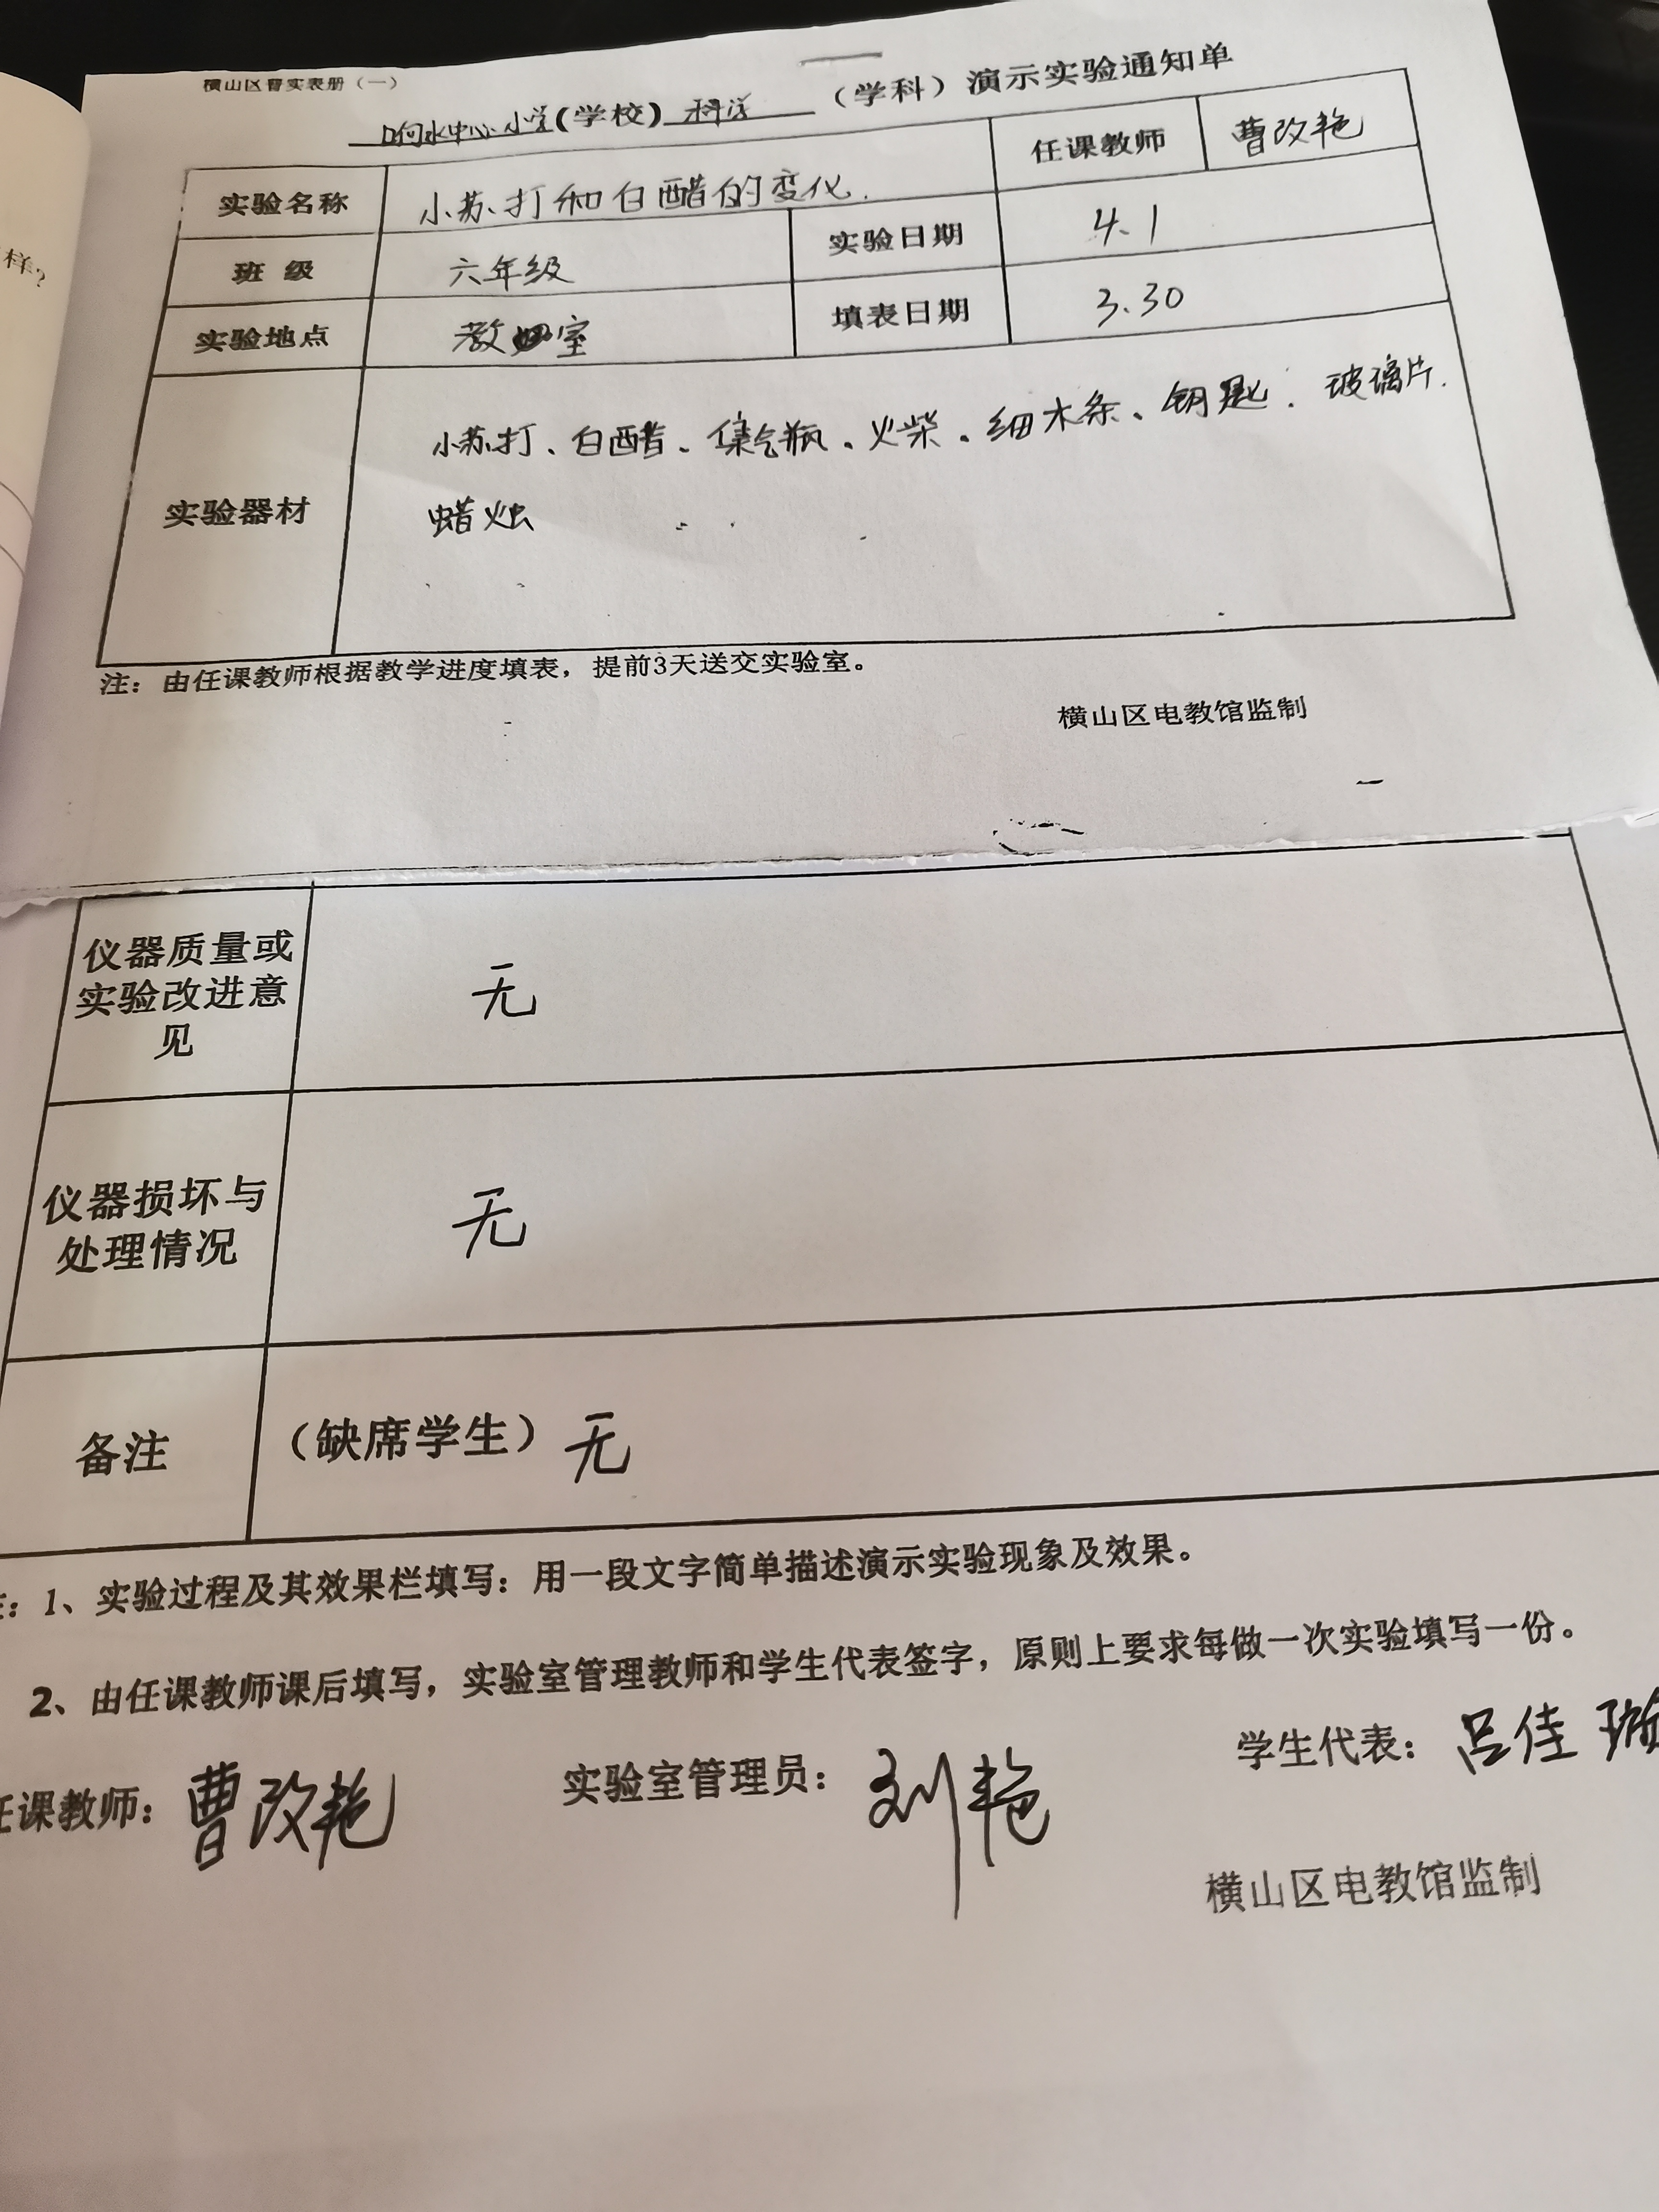 样?
横山区督实表册（一）
响水中心小学(学校) 科学 （学科）演示实验通知单
实验名称 小苏打和白醋的变化. 任课教师 曹改艳
班 级 六年级 实验日期 4.1
实验地点 教室 填表日期 3.30
实验器材 小苏打、白醋、集气瓶、火柴、细木条、钥匙、玻璃片.
蜡烛
注：由任课教师根据教学进度填表，提前3天送交实验室。
横山区电教馆监制
仪器质量或
实验改进意
见
无
仪器损坏与
处理情况
无
备注 （缺席学生）无
：1、实验过程及其效果栏填写：用一段文字简单描述演示实验现象及效果。
2、由任课教师课后填写，实验室管理教师和学生代表签字，原则上要求每做一次实验填写一份。
任课教师：曹改艳 实验室管理员：刘艳 学生代表：吕佳璇
横山区电教馆监制